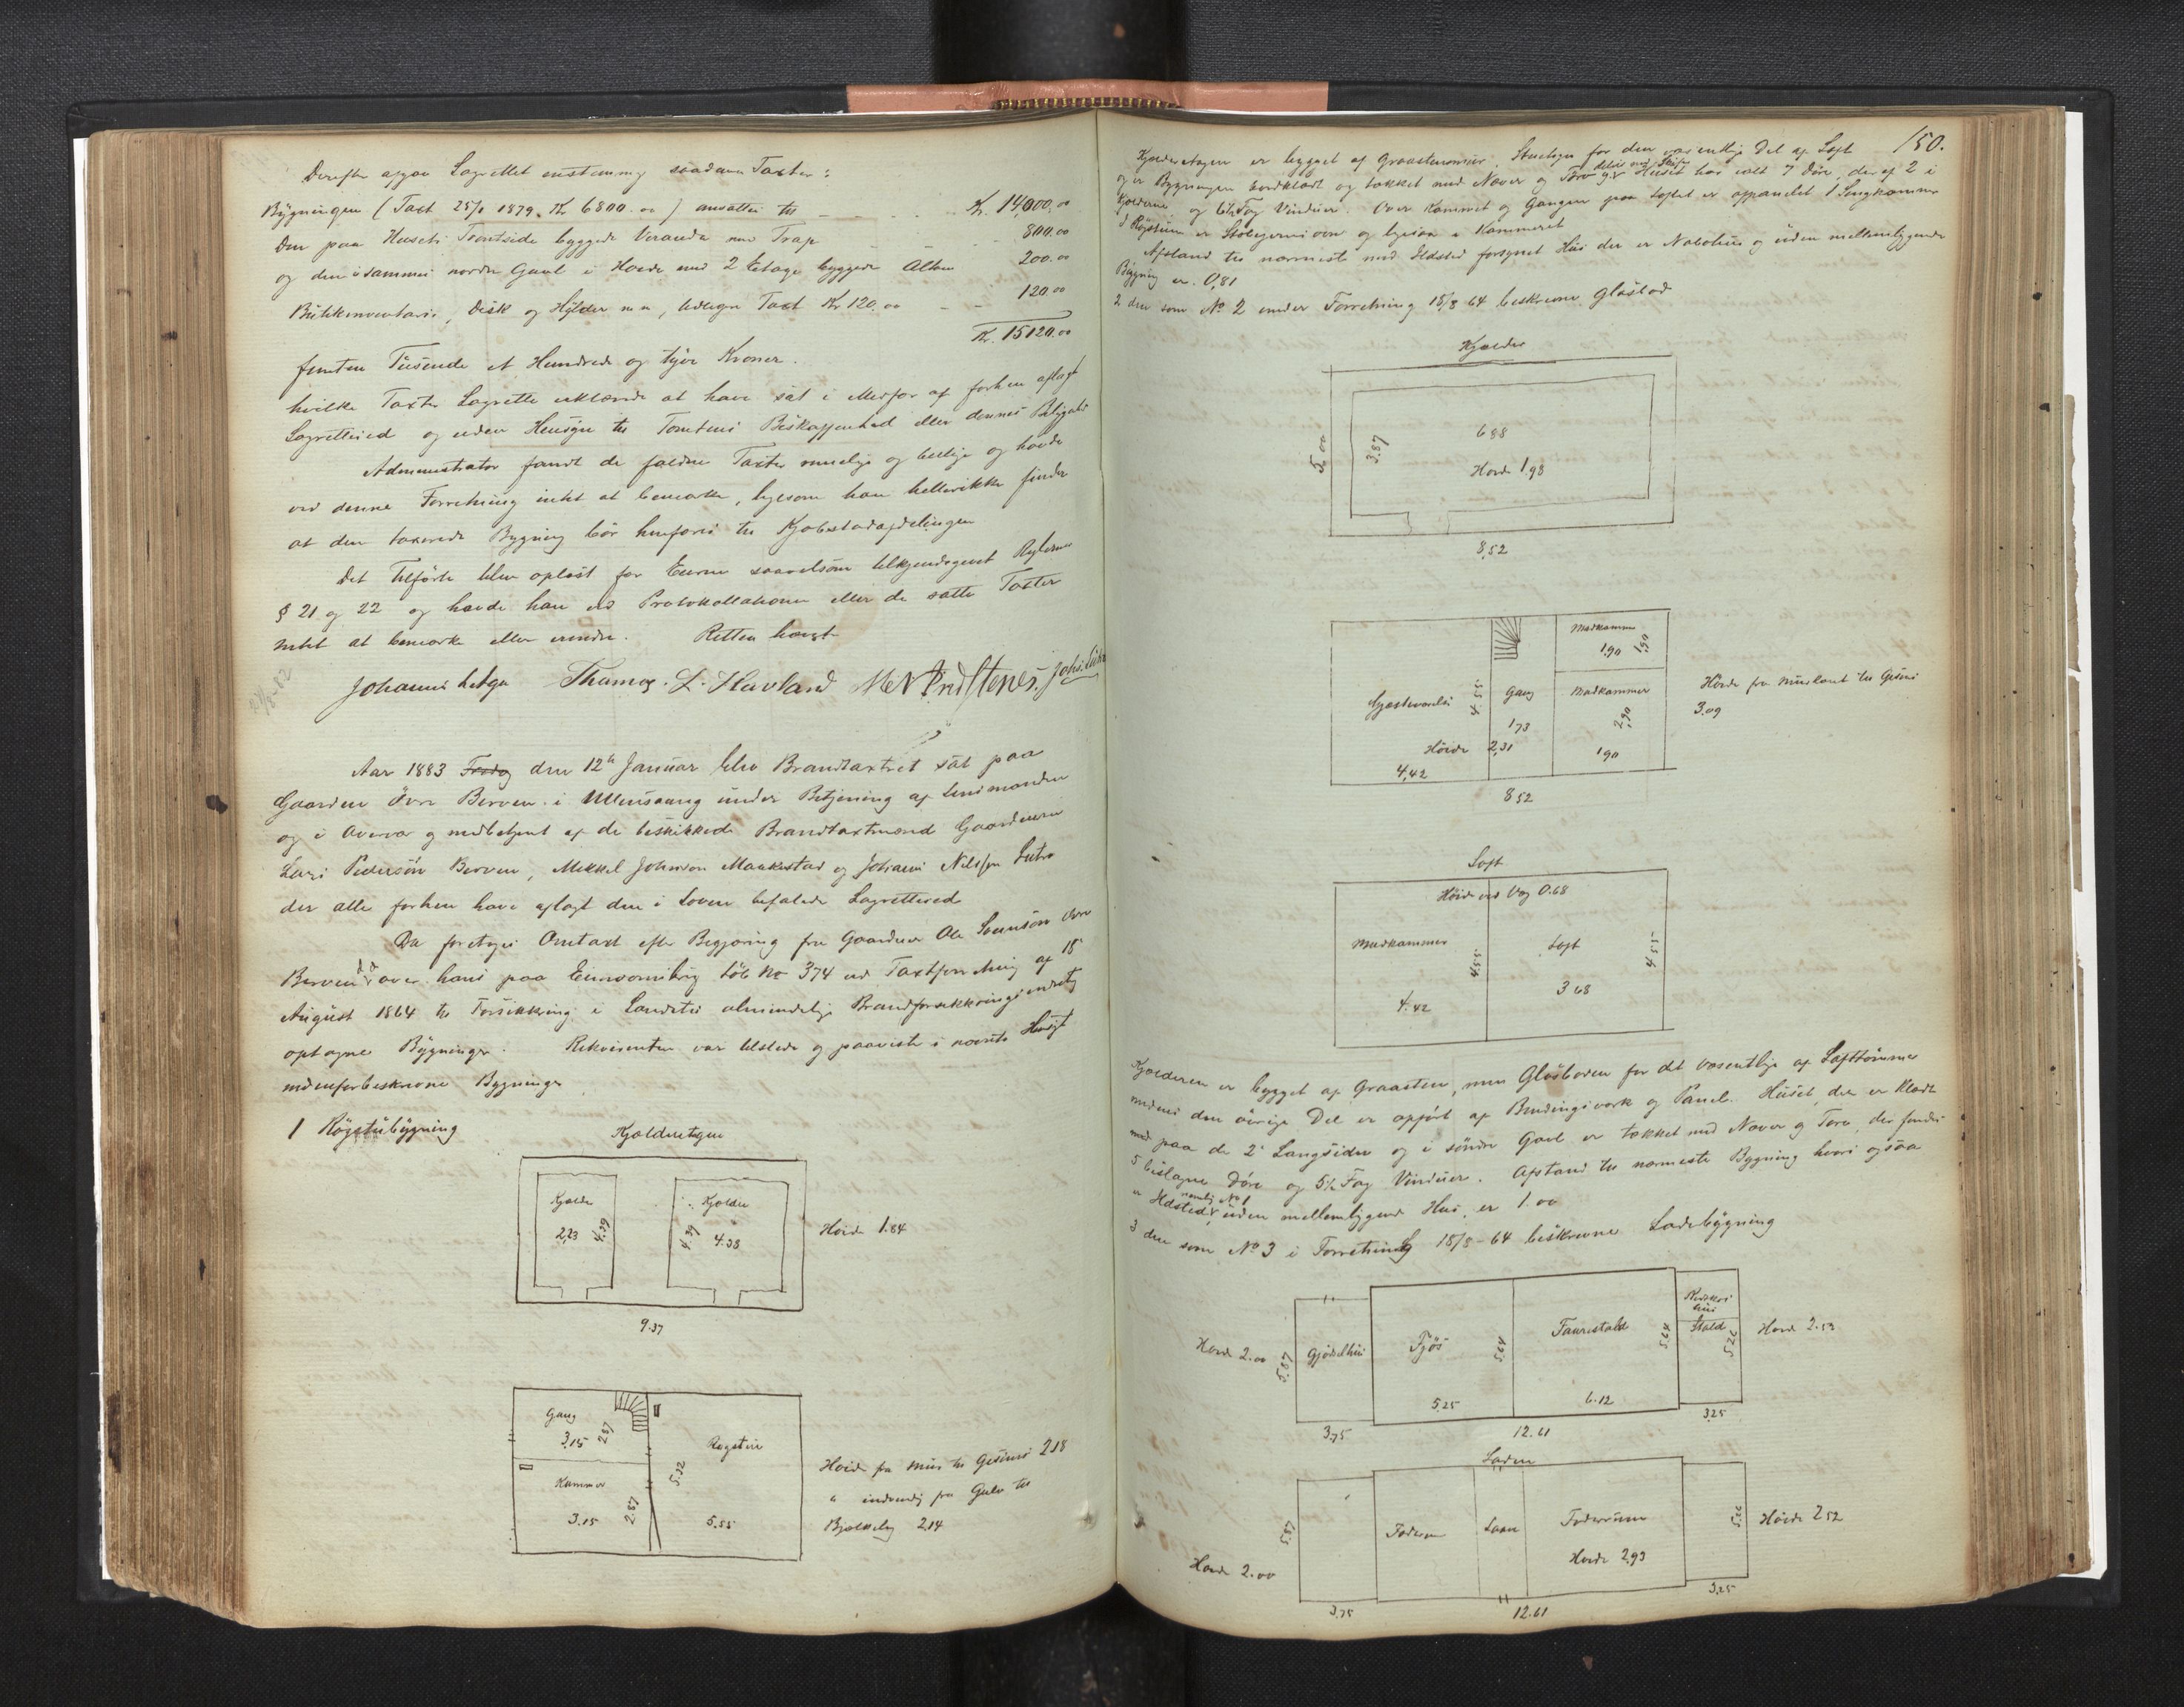 Derefter afgav Lagrettet enstemmig saadan Taxter:
Bygningen (Taxt 25/1 1879. Kr 6800.00) ansattes til Kr. 14,000.00
den paa Husets Frontside byggede Veranda med Trap 800.00
og den i sammes nordre Gavl i Høide med 2 Etage byggede Altan 200.00
Butikinventarie, Disk og Hylder m m, Taxt Kr 120.00 120.00
Kr. 15120.00
femten Tusende et Hundrede og tyve Kroner.
hvilke Taxter Lagrette erklærede at have sat i Medfør af forhen aflagt
Lagretteed og uden Hensyn til Tomtens Beskaffenhed eller dennes Beliggenhed
Administrator fandt de faldne Taxter rimelige og billige og havde
ved denne Forretning intet at bemærke, ligesom han hellerikke finder
at den taxerede Bygning bør henføres til Kjøbstadafdelingen
Det Tilførte blev oplæst for Eieren saavelsom tilkjendegivet Reglernes
§ 21 og 22 og havde han ved Protokollationen eller de satte Taxter
intet at bemærke eller erindre. Retten hævet
Johannes Thomas. L. Havland
Aar 1883 Fredag den 12te Januar blev Brandtaxtret sat paa
Gaarden Øvre Berven i Ullensvang under Betjening af Lensmanden
og i Overvær og medbetjent af de beskikkede Brandtaxtmænd Gaardmænd
Lars Pedersøn Berven, Mikkel Johnson Maakestad og Johannes Nilssen Lutro
der alle forhen have aflagt den i Loven befalede Lagretteed
Da foretoges Omtaxt efter Begjæring fra Gaardmd Ole Svensøn Øvre
Berven over hans paa Eiendommen løb No 374 ved Taxtforretning af 18
August 1864 til Forsikkring i Landets almindelige Brandforsikkringsindretg
optagne Bygninger. Rekvirenten var tilstede og paaviste i nævnte Hensigt
nedenforbeskrevne Bygninger
1 Røgstubygning
Kjælderetagen
Kjælder
2,23 4.39
Kjælder
4.39 4.38
Høide 1.84
9.37
Gang
3,15 2,87
Kammer
3.15 2.87
Røgstue
5.32
5.55
Høide fra Mur til Gesims 218
" indvendig fra Gulv til
Bjælkelag 2.14
150.
Kjælderetagen er bygget af Graasteensmur, Stuetagen for den væsentlige Del af Loft
og er Bygningen bordklædt og tækket med Næver og Torv delvis med Skifer Huset har ialt 7 Døre, deraf 2 i
Kjælderne og 6½ Fag Vinduer. Over Kammeret og Gangen paa Loftet er afpanelet 1 Sengkammer
I Røgstuen er Skorsteensovn og ligesaa i Kammeret
Afstand til nærmeste med Ildsted forsynet Hus der er Nabohus og uden mellemliggende
Bygning er. 0,81
2 den som No 2 under Forretning 18/8 64 beskrevne Glasbod
Kjælder
5.00
3.87
688
Høide 1,98
8,52
Gjesteværelse
4.55
Høide 2,31
4,42
Gang
1,73
Madkammer
1.90 1.90
Madkammer
2,90
1.90
8 52
Høide fra Murkant til Gesims
3.09
Loft
Høide ved Væg 0.68
Madkammer
4.55
4.42
Loft
3 68
4.55
Kjælderen er bygget af Graasten, men Glasboden for det væsentlige af Lafttømmer
medens den øvrige Del er opført af Bindingsværk og Panel. Huset, der er klædt
med paa de 2 Langsider og i søndre Gavl er tækket med Næver og Torv, der findes
5 beslagne Døre og 5½ Fag Vinduer. Afstand til nærmeste Bygning hvori ogsaa
er Ildsted, nemlig No 1 uden mellemliggende Hus, er 1.00
3 den som No 3 i Forretning 18/8-64 beskrevne Ladebygning
Høide 2.00
5.87
Gjødselhus
3,75
Fjøs
5.64
5.25
Faurestald
5.64
6.12
12.61
Stald
5.26
3.25
Høide 2.52
Laden
5.87
Høide 2.00
3.75
Foderum
Laave
Foderrum
Høide 2,93
12.61
5.26
3,25
Høide 2 52